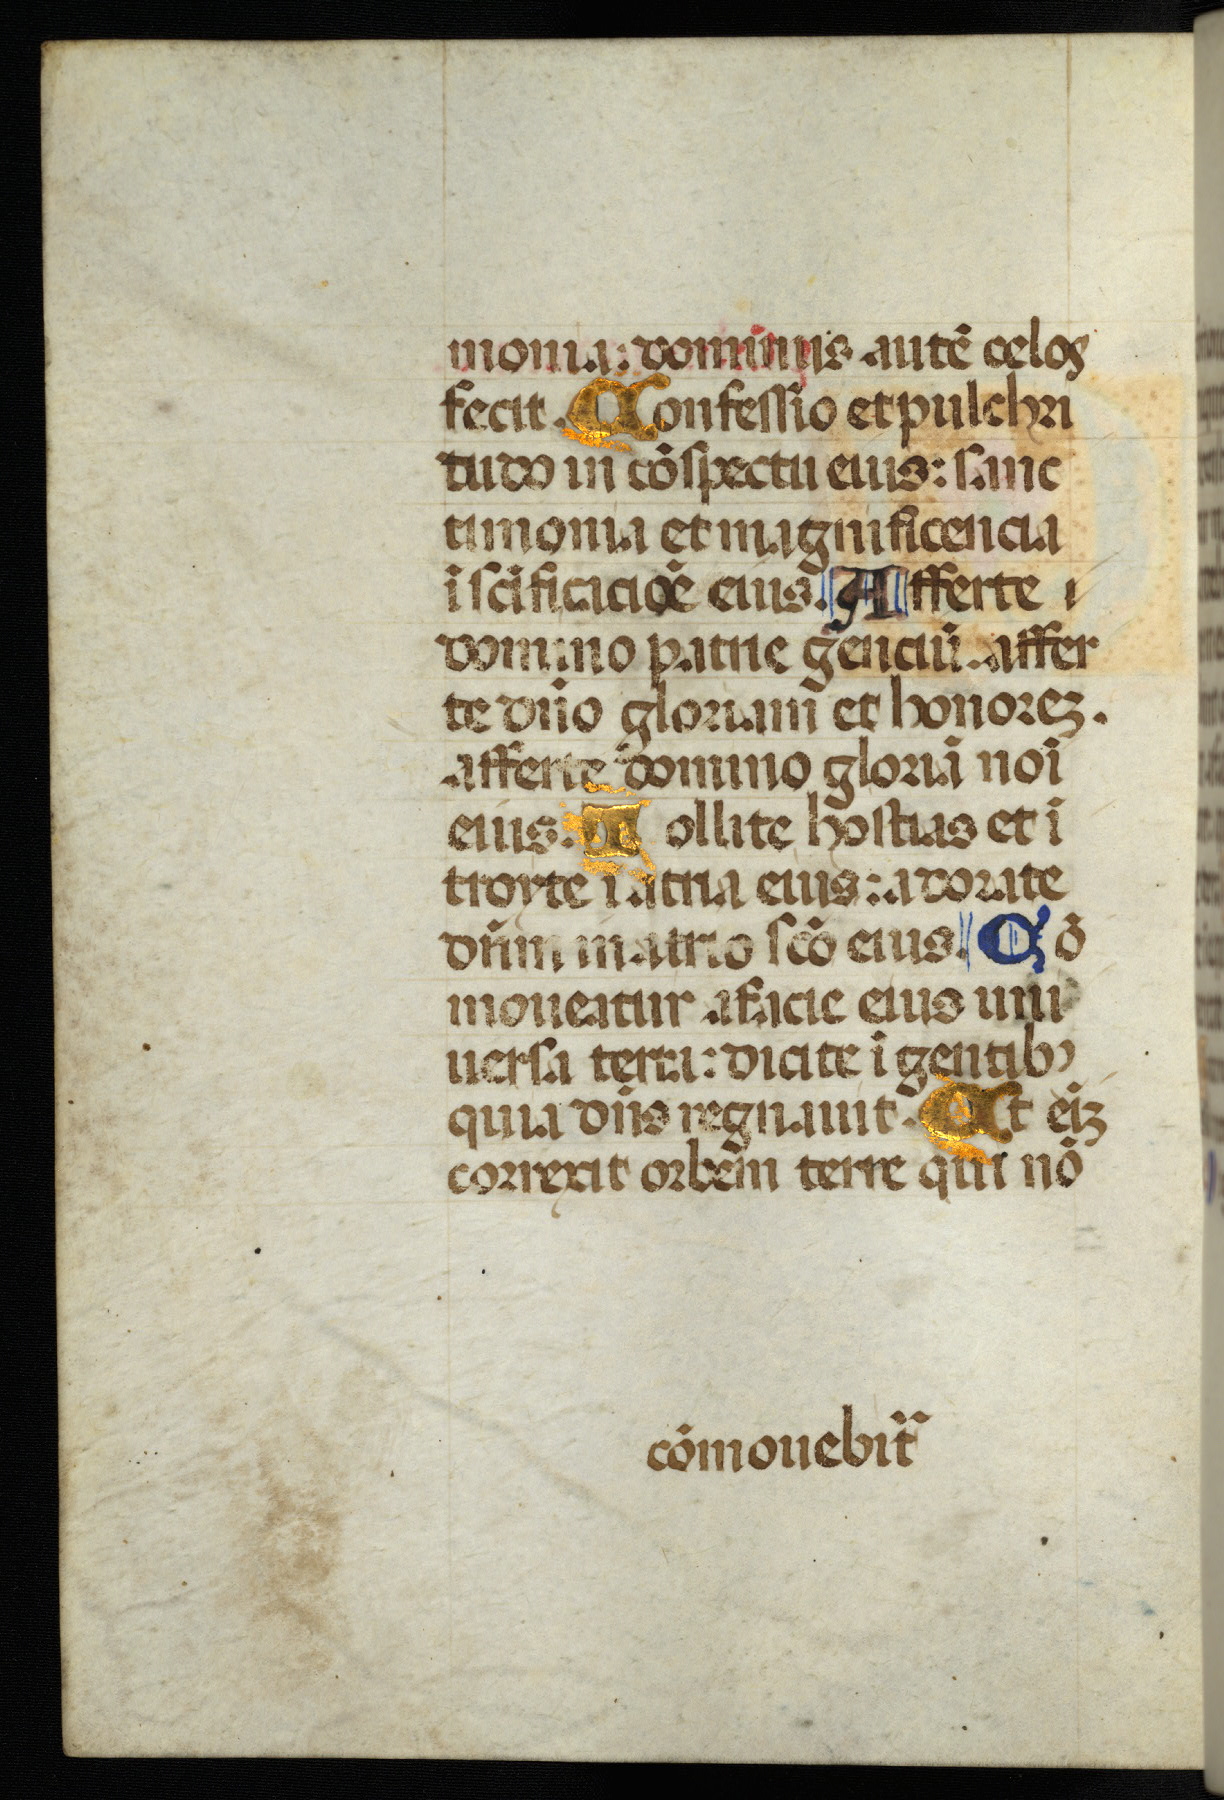 monia: dominus autē celos
fecit. Confessio et pulchri
tudo in cōspectu eius: sanc
timonia et magnificencia
ī scīficacioē eius. Afferte
domino patrie genciū. affer
te dn̄o gloriam et honorez.
afferte domino gloriā noī
eius. Tollite hostias et ī
troyte ī atria eius: adorate
dn̄m in atrio scō eius. Cō
moueatur a facie eius uni
uersa terra: dicite ī gentibꝰ
quia dn̄s regnauit. Et eīz
correxit orbem terre qui nō
cōmouebit᷑